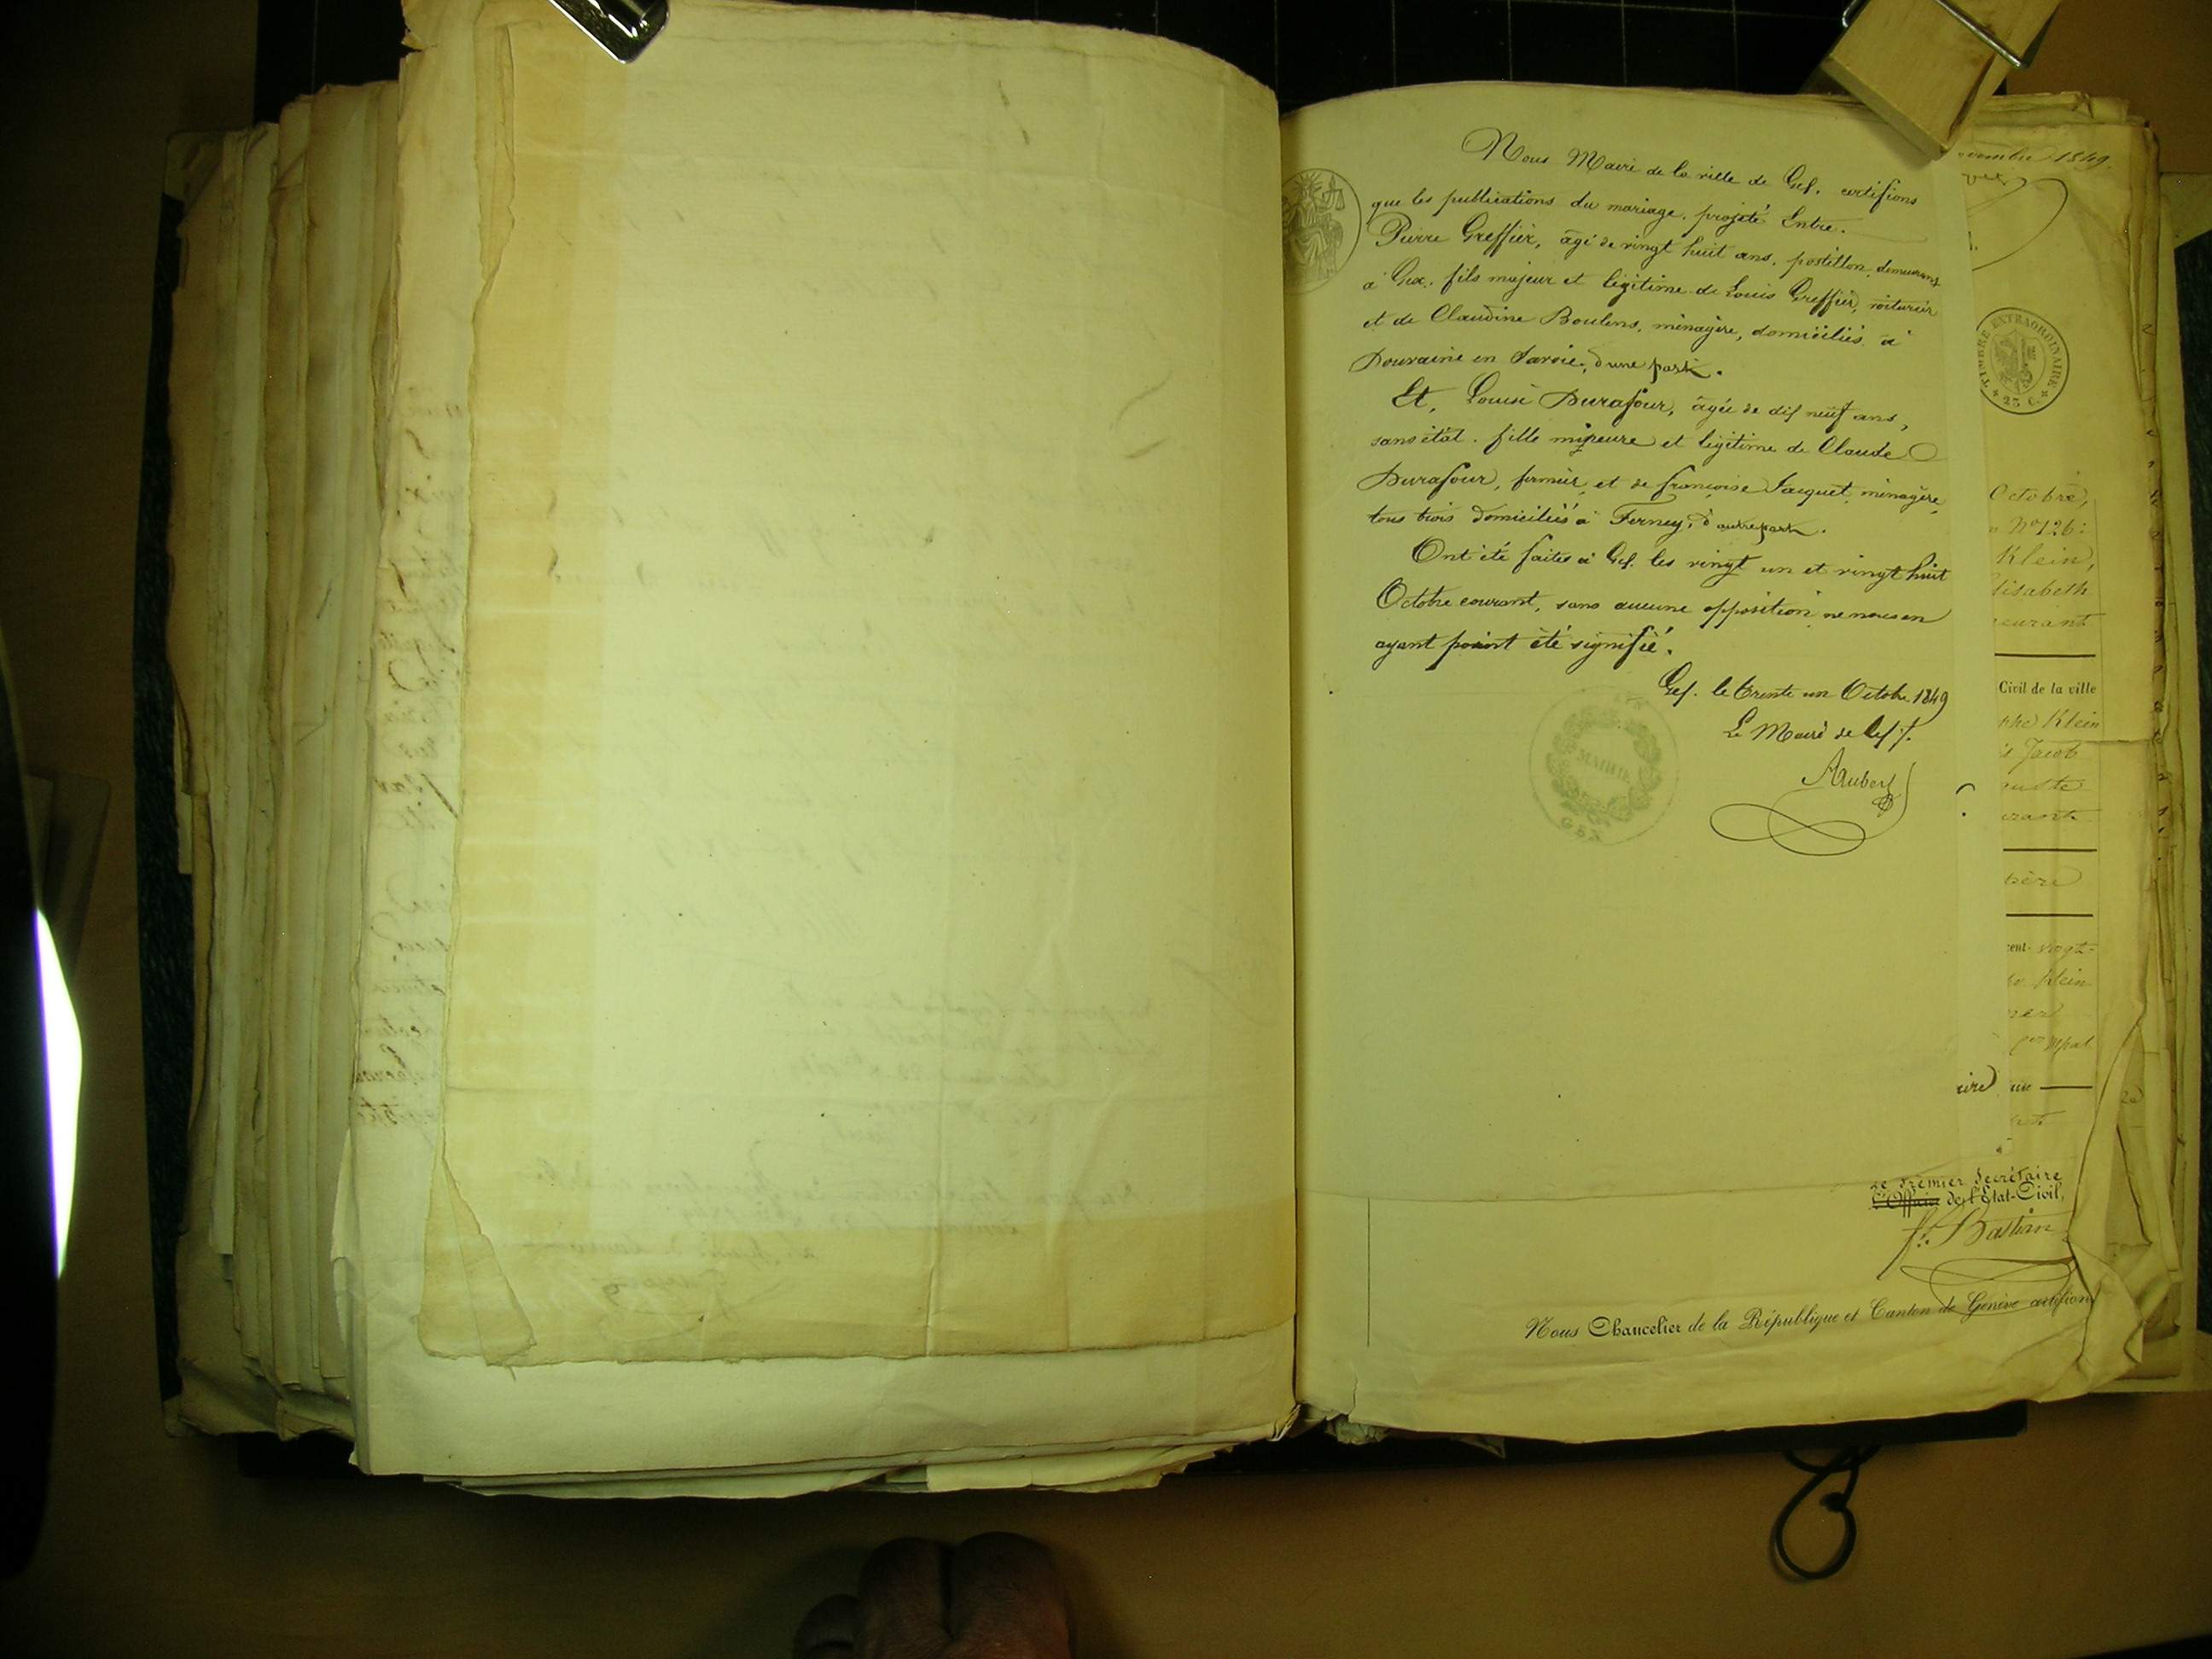 Nous Maire de la ville de Gex. certifions
que les publications du mariage. projeté Entre.
Pierre Greffier, âgé de vingt huit ans, postillon, demeurant
à Gex. fils majeur et légitime de Louis Greffier, voiturier
et de Claudine Boulens, ménagère, domiciliés à
Douvaine en Savoie, d'une part.
Et, Louise Durafour, âgée de dix neuf ans,
sans état. fille mineure et légitime de Claude
Durafour, fermier, et de françoise Jacquet, ménagère,
tous trois domiciliés à Ferney, d'autre part.
Ont été faites à Gex. les vingt un et vingt huit
Octobre courant, sans aucune opposition ne nous en
ayant point été signifié.
Gex. le trente un Octobre 1849
Le Maire de Gex.
Aubert
MAIRIE
GEX
vembre 1849.
TIMBRE EXTRAORDINAIRE
25 C.
Octobre,
No 126:
Klein,
lisabeth
eurant
Civil de la ville
phe Klein
Jacob
uste
urante
père
cent vingt-
Klein
aire
Le Premier Secrétaire
L'Officier de l'Etat-Civil,
Bastian
Nous Chancelier de la République et Canton de Genève certifions